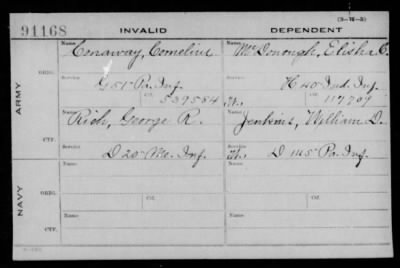 (3-18-3)
91168 INVALID DEPENDENT
Name: Conaway, Cornelius Name: McDonough, Elisha C.
ARMY
ORIG.
Service: G 51 Pa. Inf. Service: H 40 Ind. Inf.
Of. 537584 W. Of. 117709
Name: Rich, George R. Name: Jenkins, William D.
CTF.
Service: D 20 Me. Inf. Service: W. D 145 Pa. Inf.
NAVY
Name: Name:
ORIG.
Service: Of. Service: Of.
Name: Name:
CTF.
Service: Service: